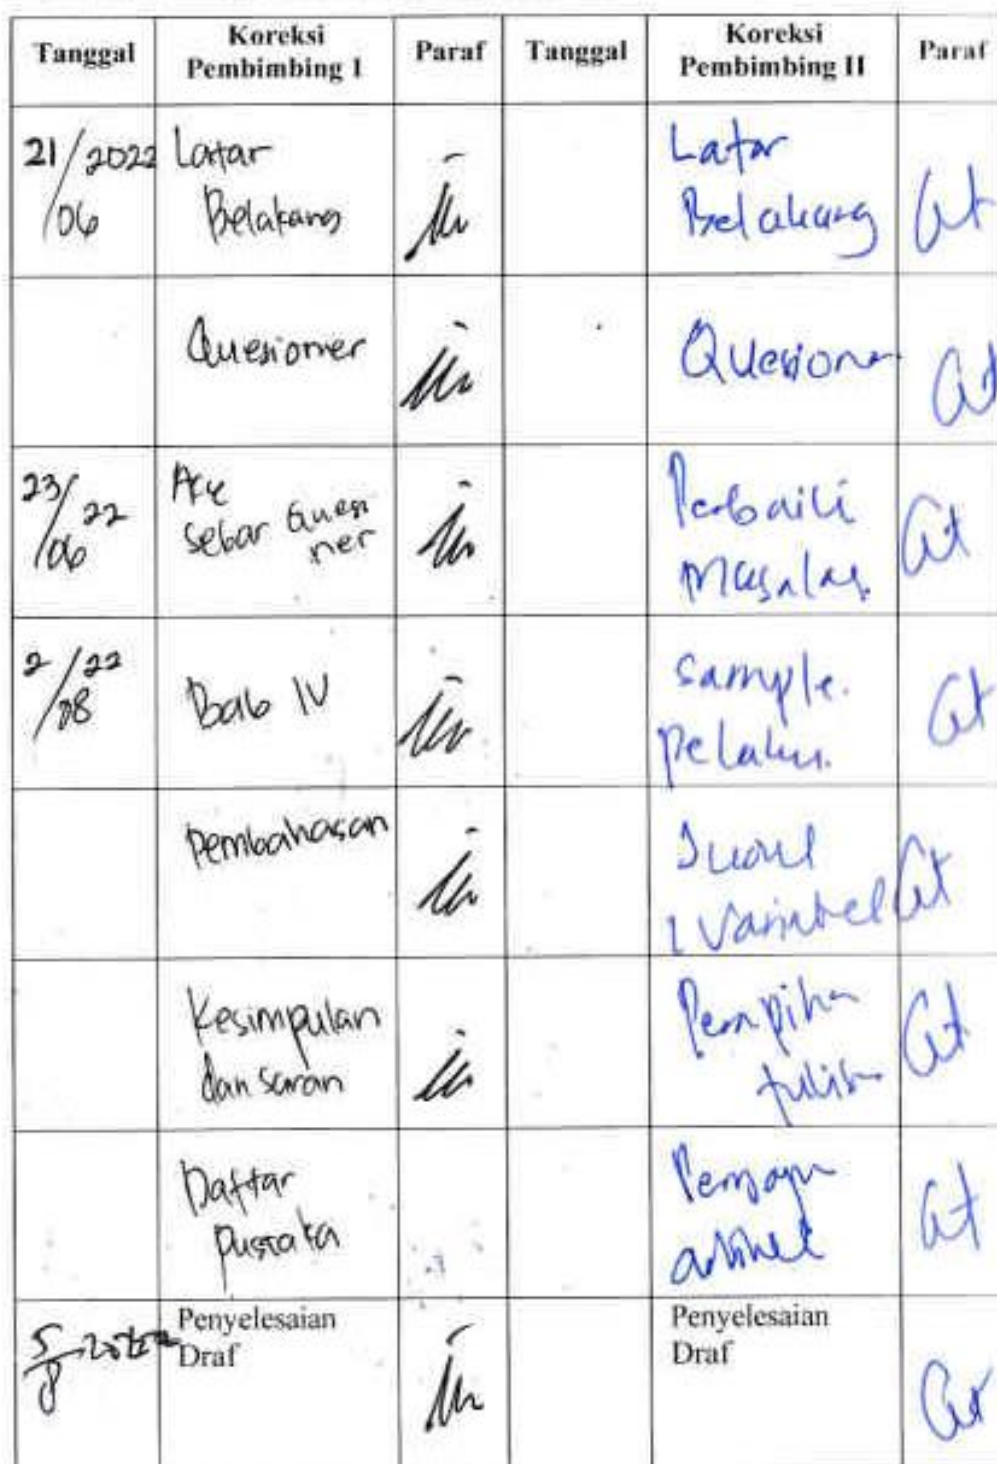 Tanggal Koreksi Pembimbing I Paraf Tanggal Koreksi Pembimbing II Paraf
21/06 2022 Latar Latar
Belakang Belakang
Quesioner Quesioner
23/06 22 Acc Perbaiki
sebar Quesi
ner
2/08 22 Bab IV Sample.
Pelaku.
Pembahasan
Variabel
Kesimpulan
dan saran tulisan
Daftar
Pustaka
5/8 Penyelesaian Penyelesaian
Draf Draf